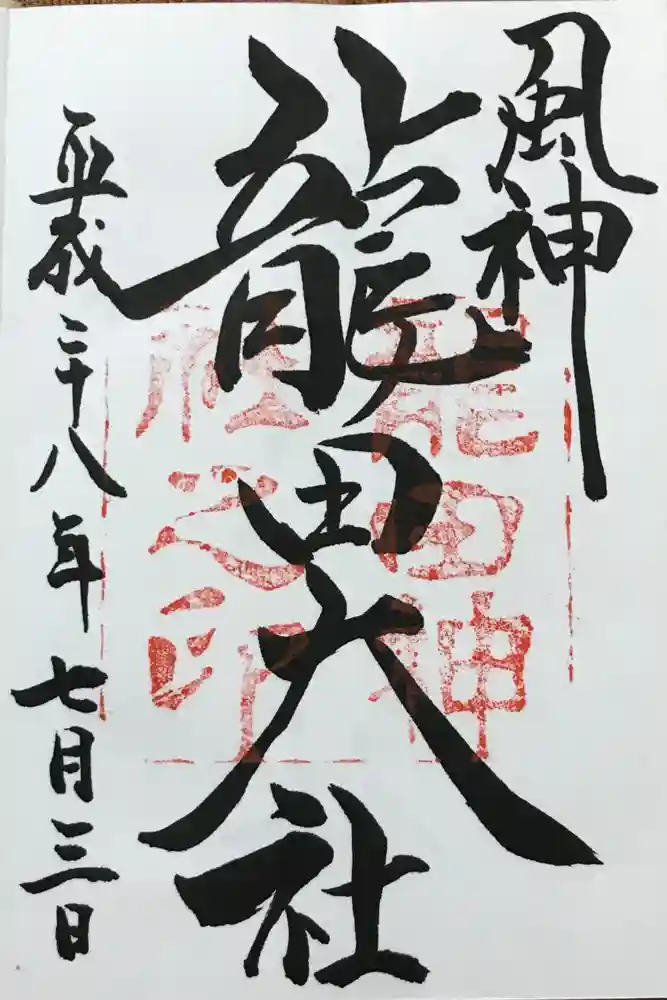 風神
龍田大社
平成二十八年七月三日
龍田神
社之印